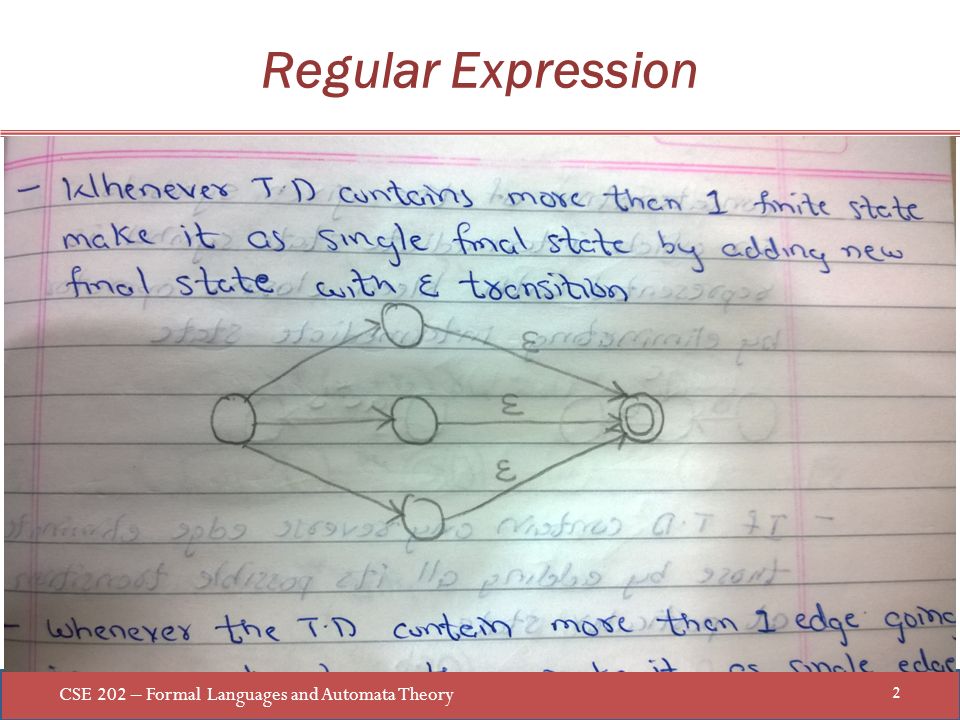 Regular Expression
- Whenever T.D contains more than 1 finite state
make it as single final state by adding new
final state with ε transition
ε
ε
ε
- Whenever the T.D contain more than 1 edge going
as single edge
CSE 202 – Formal Languages and Automata Theory
2